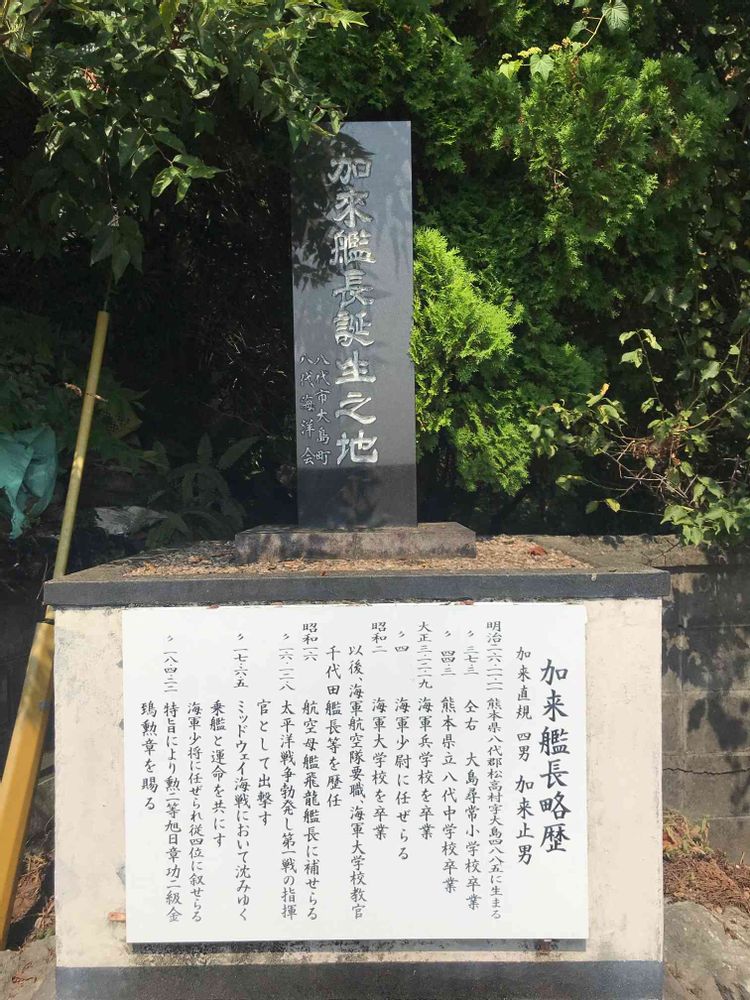 加来艦長誕生之地
八代市大島町
八代海洋会
加来艦長略歴
加来直規 四男 加来止男
明治二六・ 熊本県八代郡松高村字大島四八八五に生まる
〃 三七・三 仝右 大島尋常小学校卒業
〃 四四・三 熊本県立八代中学校卒業
大正三・一二・一九 海軍兵学校を卒業
〃 四 海軍少尉に任ぜらる
昭和二 海軍大学校を卒業
以後、海軍航空隊要職、海軍大学校教官
千代田艦長等を歴任
昭和一六 航空母艦飛龍艦長に補せらる
〃 一六・一二・八 太平洋戦争勃発し第一戦の指揮
官として出撃す
〃 一七・六・五 ミッドウェイ海戦において沈みゆく
乗艦と運命を共にす
海軍少将に任ぜられ従四位に叙せらる
〃 一八・四・二二 特旨により勲二等旭日章功二級金
鵄勲章を賜る